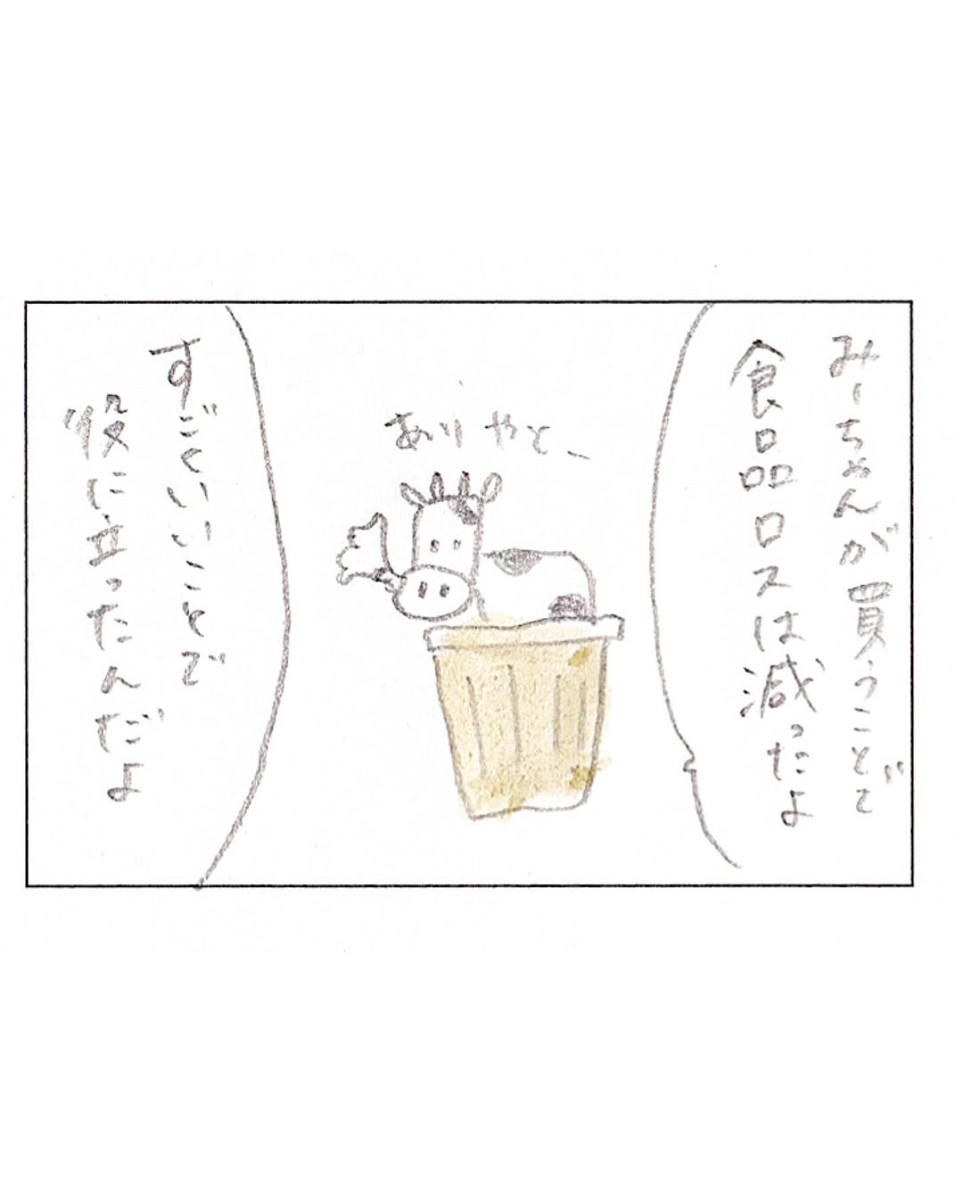 みーちゃんが買うことで
食品ロスは減ったよ
ありやとー
すごくいいことで
役に立ったんだよ